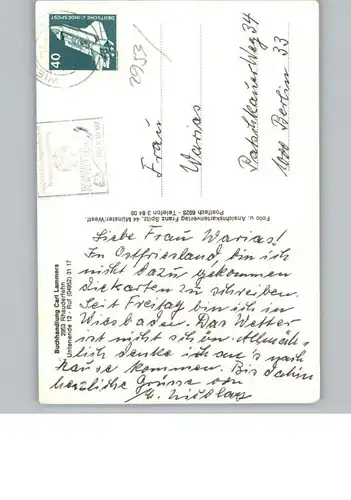 DEUTSCHE BUNDESPOST
40
2953/
Frau
Warias
Patschkauer Weg 34
1000 Berlin 33
Foto u. Ansichtskartenverlag Franz Spitz, 44 Münster/Westf.
Postfach 6926 - Telefon 3 84 09
Buchhandlung Carl Lammers
2953 Rhauderfehn
Untenende 12 - Ruf (04952) 31 17
Liebe Frau Warias!
In Ostfriesland, bin ich
nicht dazu gekommen
die Karten zu schreiben.
Seit Freitag bin ich in
Wiesbaden. Das Wetter
ist nicht schön. Allmäh-
lich denke ich an's nach
Hause kommen. Bis dahin
herzliche Grüsse von